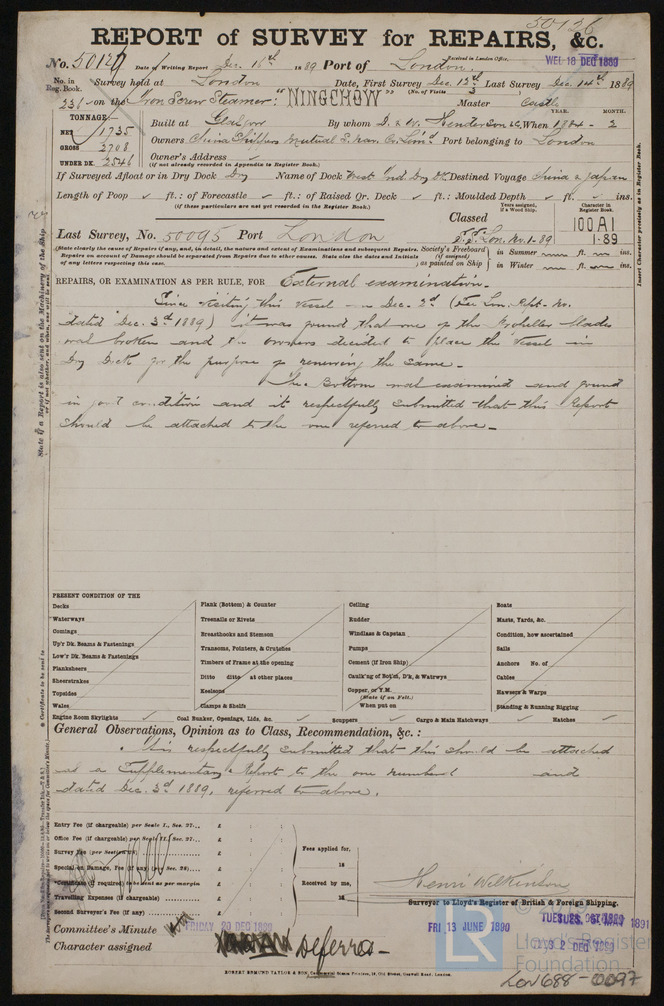 50126
REPORT of SURVEY for REPAIRS, &c.
No. 50129 Date of Writing Report Dec. 16th 1889 Port of London.
Received in London Office, WED 18 DEC 1889
No. in Reg. Book. Survey held at London Date, First Survey Dec. 12th Last Survey Dec. 14th 1889
(No. of Visits 3 )
231 on the Iron Screw Steamer: "NINGCHOW" Master Castle
TONNAGE YEAR. MONTH.
NET 1735 Built at Glasgow By whom D. & W. Henderson & Co. When 1884 - 2
GROSS 2708 Owners China Shippers Mutual S. Nav. Co. Limd. Port belonging to London
UNDER DK. 2546 Owner's Address
(if not already recorded in Appendix to Register Book.)
If Surveyed Afloat or in Dry Dock Dry Name of Dock West Ind Dry Dk Destined Voyage China & Japan
Length of Poop ft.: of Forecastle ft.: of Raised Qr. Deck ft.: Moulded Depth ft. ins.
(if these particulars are not yet recorded in the Register Book.)
Classed
Years assigned, if a Wood Ship.
Character in Register Book.
100A1
Last Survey, No. 50095 Port London S.S. Lon. No. 1-89
1.89
(State clearly the cause of Repairs if any, and, in detail, the nature and extent of Examinations and subsequent Repairs.
Repairs on account of Damage should be separated from Repairs due to other causes. State also the dates and Initials
of any letters respecting this case.
Society's Freeboard (if assigned) as painted on Ship
in Summer ft. ins.
in Winter ft. ins.
Insert Character precisely as in Register Book.
REPAIRS, OR EXAMINATION AS PER RULE, FOR External examination.
Since visiting this Vessel on Dec. 2d (See Lon. Rept. No.
dated Dec. 3d 1889) it was found that one of the Propeller blades
was broken and the owners decided to place the Vessel in
Dry Dock for the purpose of renewing the same.
The Bottom was examined and found
in good condition and it respectfully submitted that this Report
should be attached to the one referred to above.
PRESENT CONDITION OF THE
Decks
Waterways
Comings
Up'r Dk. Beams & Fastenings
Low'r Dk. Beams & Fastenings
Planksheers
Sheerstrakes
Topsides
Wales
Engine Room Skylights
Plank (Bottom) & Counter
Treenails or Rivets
Breasthooks and Stemson
Transoms, Pointers, & Crutches
Timbers of Frame at the opening
Ditto ditto at other places
Keelsons
Clamps & Shelfs
Coal Bunker, Openings, Lids, &c.
Ceiling
Rudder
Windlass & Capstan
Pumps
Cement (if Iron Ship)
Caulk'ng of Bot'm, D'k, & Watrwys
Copper, or Y.M.
(State if on Felt.)
When put on
Scuppers
Boats
Masts, Yards, &c.
Condition, how ascertained
Sails
Anchors No. of
Cables
Hawsers & Warps
Standing & Running Rigging
Cargo & Main Hatchways
Hatches
General Observations, Opinion as to Class, Recommendation, &c. :
It is respectfully submitted that this should be attached
as a Supplementary Report to the one numbered and
dated Dec. 3d 1889, referred to above.
Entry Fee (if chargeable) per Scale I., Sec. 27... £
Office Fee (if chargeable) per Scale II., Sec. 27... £
Survey Fee (per Section 28) £
Special or Damage, Fee (if any) (per Sec. 28)... £
*Certificate (if required) to be sent as per margin
Travelling Expenses (if chargeable) £
Second Surveyor's Fee (if any) £
Fees applied for, 18
Received by me, 18
Henri Wilkinson
Surveyor to Lloyd's Register of British & Foreign Shipping.
Committee's Minute FRIDAY 20 DEC 1889
FRI 13 JUNE 1890
Character assigned Deferred
ROBERT EDMUND TAYLOR & SON, London.
LR
Lloyd's Register
Foundation
LON688-0097